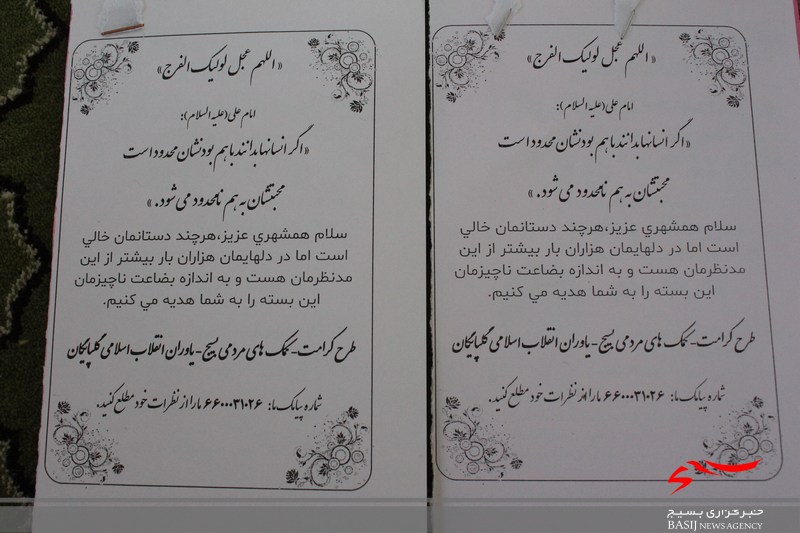 « اللهم عجل لولیک الفرج»
امام علی(علیه السلام):
«اگر انسانها بدانند باهم بودنشان محدود است
محبتشان به هم نامحدود می شود. »
سلام همشهري عزيز،هرچند دستانمان خالي
است اما در دلهايمان هزاران بار بيشتر از اين
مدنظرمان هست و به اندازه بضاعت ناچيزمان
اين بسته را به شما هديه مي كنيم.
طرح کرامت- کمک های مردمی بسیج - یاوران انقلاب اسلامی گلپایگان
شماره پیامک ما: ۶۶۰۰۰۳۱۰۲۶ ما را از نظرات خود مطلع کنید.
« اللهم عجل لولیک الفرج»
امام علی(علیه السلام):
«اگر انسانها بدانند باهم بودنشان محدود است
محبتشان به هم نامحدود می شود. »
سلام همشهري عزيز،هرچند دستانمان خالي
است اما در دلهايمان هزاران بار بيشتر از اين
مدنظرمان هست و به اندازه بضاعت ناچيزمان
اين بسته را به شما هديه مي كنيم.
طرح کرامت- کمک های مردمی بسیج - یاوران انقلاب اسلامی گلپایگان
شماره پیامک ما: ۶۶۰۰۰۳۱۰۲۶ ما را از نظرات خود مطلع کنید.
بسیج
خبرگزاری بسیج
BASIJ NEWS AGENCY